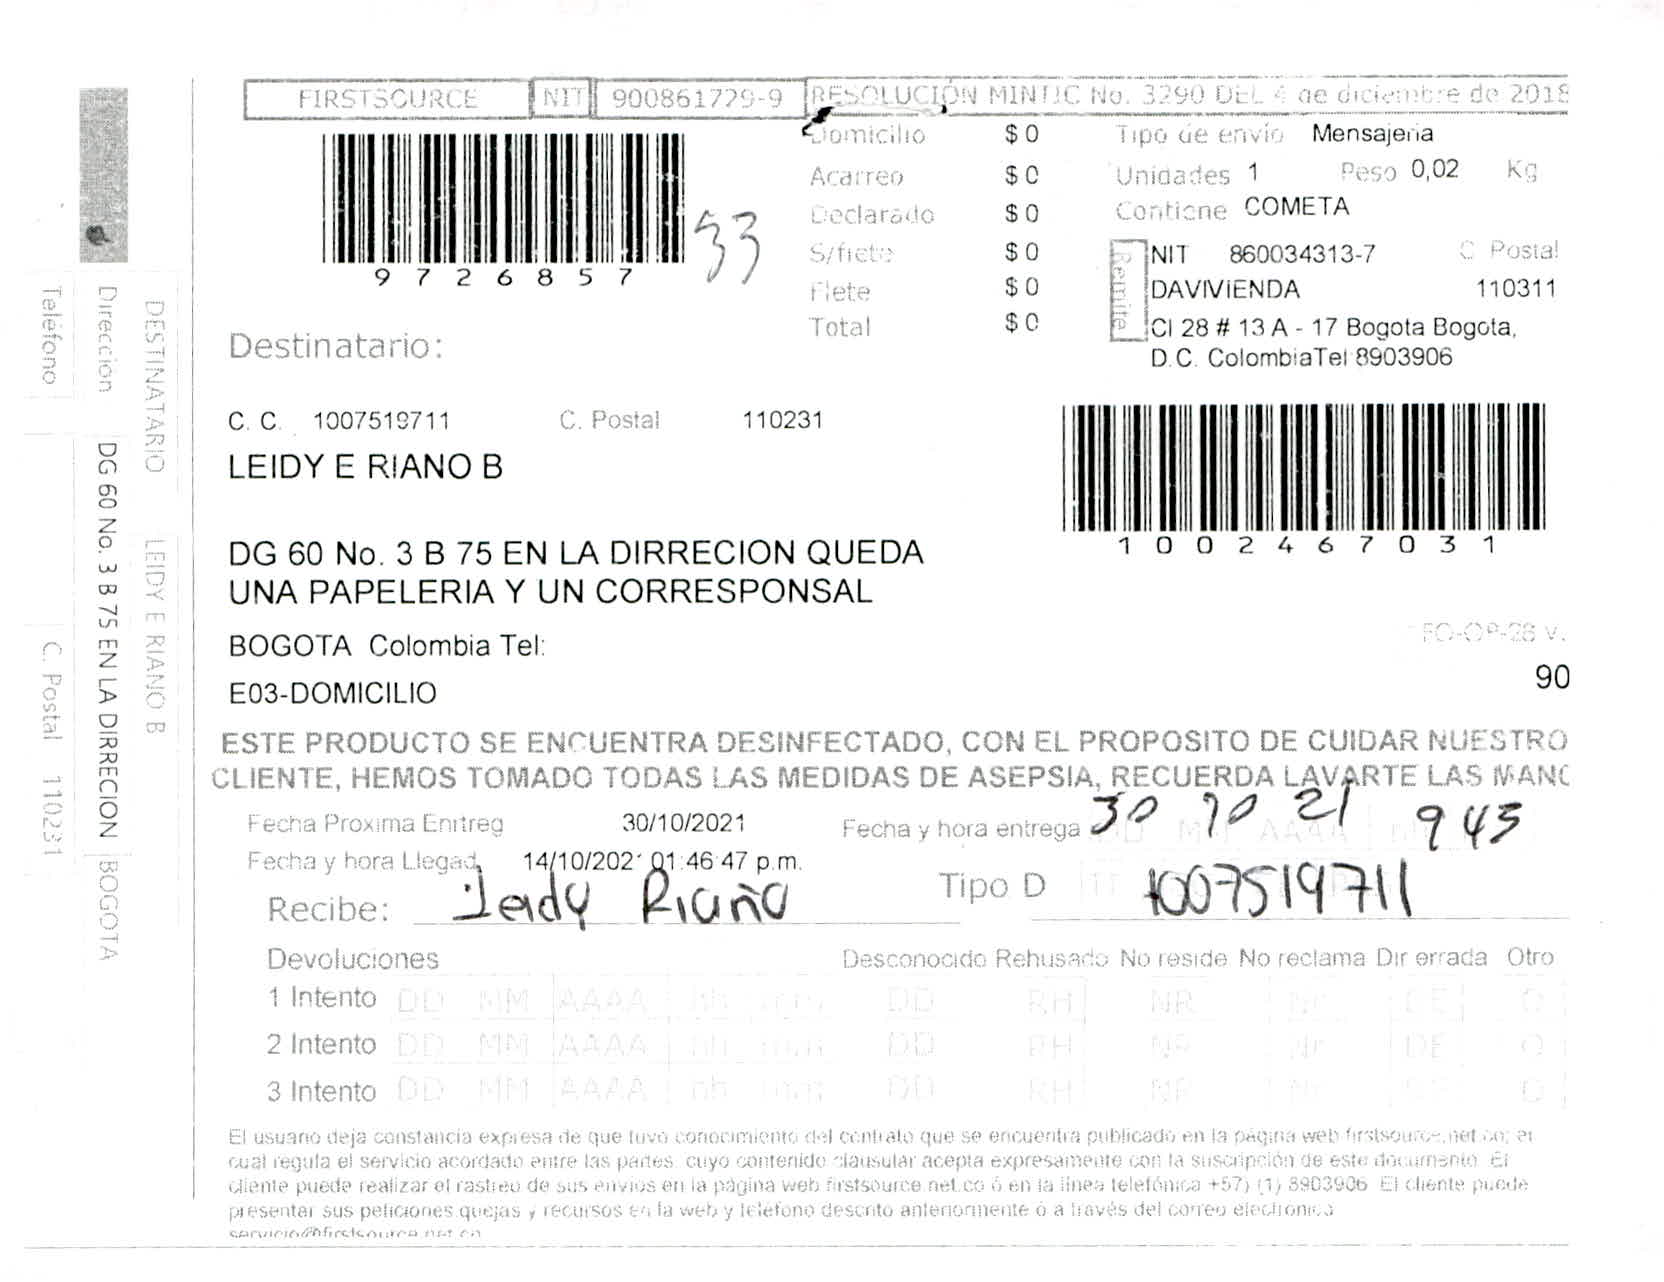 FIRSTSOURCE NIT 900861729-9 RESOLUCIÓN MINTIC No. 3290 DEL 4 de diciembre de 2018
9726857
33
Domicilio $ 0
Acarreo $ 0
Declarado $ 0
S/flete $ 0
Flete $ 0
Total $ 0
Tipo de envío Mensajeria
Unidades 1 Peso 0,02 Kg
Contiene COMETA
Remite
NIT 860034313-7 C Postal
DAVIVIENDA 110311
Cl 28 # 13 A - 17 Bogota Bogota,
D.C. ColombiaTel 8903906
Destinatario:
C. C. 1007519711 C. Postal 110231
LEIDY E RIANO B
1002467031
DG 60 No. 3 B 75 EN LA DIRRECION QUEDA
UNA PAPELERIA Y UN CORRESPONSAL
BOGOTA Colombia Tel:
FO-OP-28 v.
90
E03-DOMICILIO
ESTE PRODUCTO SE ENCUENTRA DESINFECTADO, CON EL PROPOSITO DE CUIDAR NUESTRO
CLIENTE, HEMOS TOMADO TODAS LAS MEDIDAS DE ASEPSIA, RECUERDA LAVARTE LAS MANO
Fecha Proxima Enitreg 30/10/2021 Fecha y hora entrega 30 10 21 943
Fecha y hora Llegad 14/10/2021 01:46:47 p.m.
Recibe: Leidy Riaño Tipo D 1007519711
Devoluciones Desconocido Rehusado No reside No reclama Dir errada Otro
1 Intento DD MM AAAA hh mm DD RH NR Nr DE O
2 Intento DD MM AAAA hh mm DD RH NR Nr DE O
3 Intento DD MM AAAA hh mm DD RH NR Nr DE O
El usuario deja constancia expresa de que tuvo conocimiento del contrato que se encuentra publicado en la página web firstsource.net.co; el
cual regula el servicio acordado entre las partes, cuyo contenido clausular acepta expresamente con la suscripción de este documento. El
cliente puede realizar el rastreo de sus envios en la página web firstsource.net.co ó en la línea telefónica +57) (1) 8903906 El cliente puede
presentar sus peticiones quejas y recursos en la web y teléfono descrito anteriormente o a través del correo electronico
servicio@firstsource.net.co
DESTINATARIO LEIDY E RIANO B
Dirección DG 60 No. 3 B 75 EN LA DIRRECION BOGOTA
Teléfono C. Postal 110231